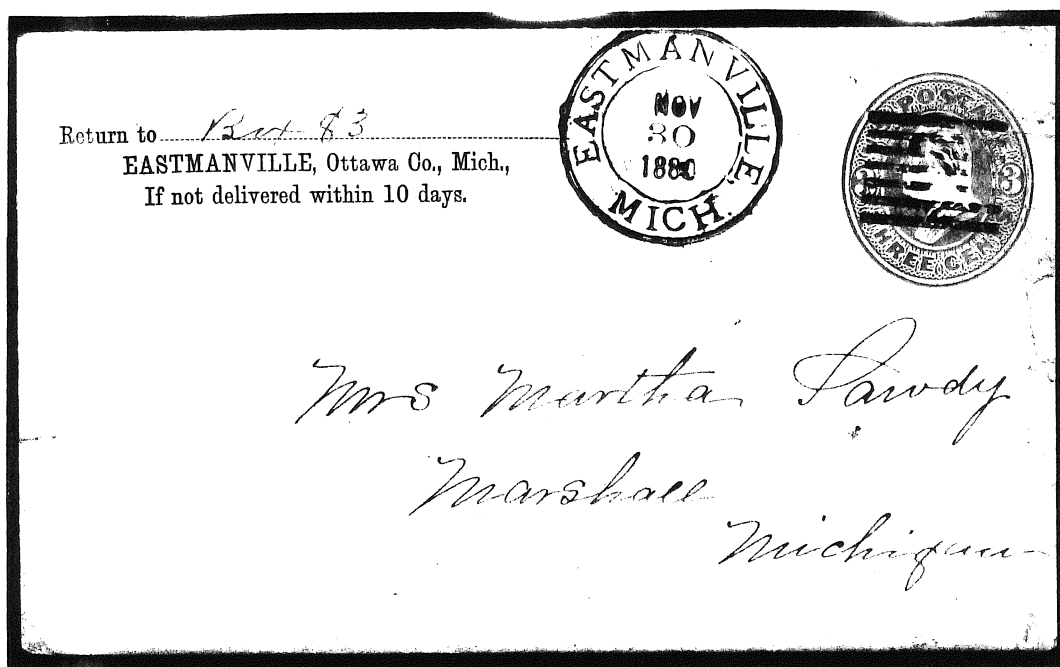 Return to Box 83
EASTMANVILLE, Ottawa Co., Mich.,
If not delivered within 10 days.
EASTMANVILLE,
NOV
30
1880
MICH.
POSTA
3 3
HREE CEN
Mrs Martha
Marshall
Michigan